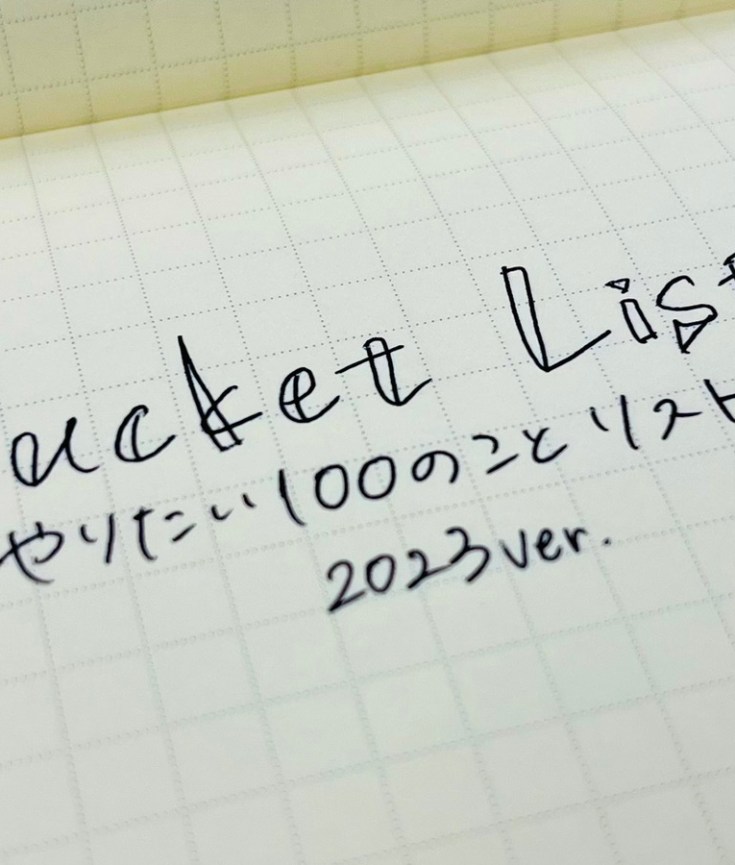 ucket List
やりたい100のことリスト
2023 ver.